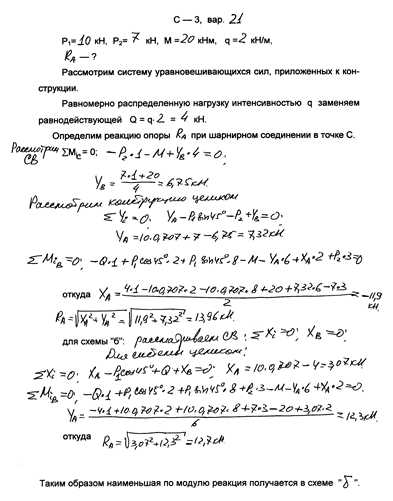 С — 3, вар. 21
P₁= 10 кН, P₂= 7 кН, M = 20 кНм, q = 2 кН/м,
R_A — ?
Рассмотрим систему уравновешивающихся сил, приложенных к кон-
струкции.
Равномерно распределенную нагрузку интенсивностью q заменяем
равнодействующей Q = q·2 = 4 кН.
Определим реакцию опоры R_A при шарнирном соединении в точке С.
Рассмотрим СВ ΣM_ic = 0; -P₂·1-M+Y_B·4=0;
Y_B = (7·1+20)/4 = 6,75 кН.
Рассмотрим конструкцию целиком
ΣY_i=0; Y_A-P₁sin45°-P₂+Y_B=0;
Y_A=10·0,707+7-6,75=7,32 кН
ΣM_iB=0; -Q·1+P₁cos45°·2+P₁sin45°·8-M-Y_A·6+X_A·2+P₂·3=0
откуда X_A = (4·1-10·0,707·2-10·0,707·8+20+7,32·6-7·3)/2 = -11,9 кН
R_A=√(X_A²+Y_A²) = √(11,9²+7,32²) = 13,96 кН.
для схемы "б": рассматриваем СВ: ΣX_i=0; X_B=0;
Для системы целиком:
ΣX_i=0; X_A-P₁cos45°+Q+X_B=0; X_A=10·0,707-4=3,07 кН
ΣM_iB=0; -Q·1+P₁cos45°·2+P₁sin45°·8+P₂·3-M-Y_A·6+X_A·2=0.
Y_A = (-4·1+10·0,707·2+10·0,707·8+7·3-20+3,07·2)/6 = 12,3 кН
откуда R_A=√(3,07²+12,3²)=12,7 кН.
Таким образом наименьшая по модулю реакция получается в схеме "б".